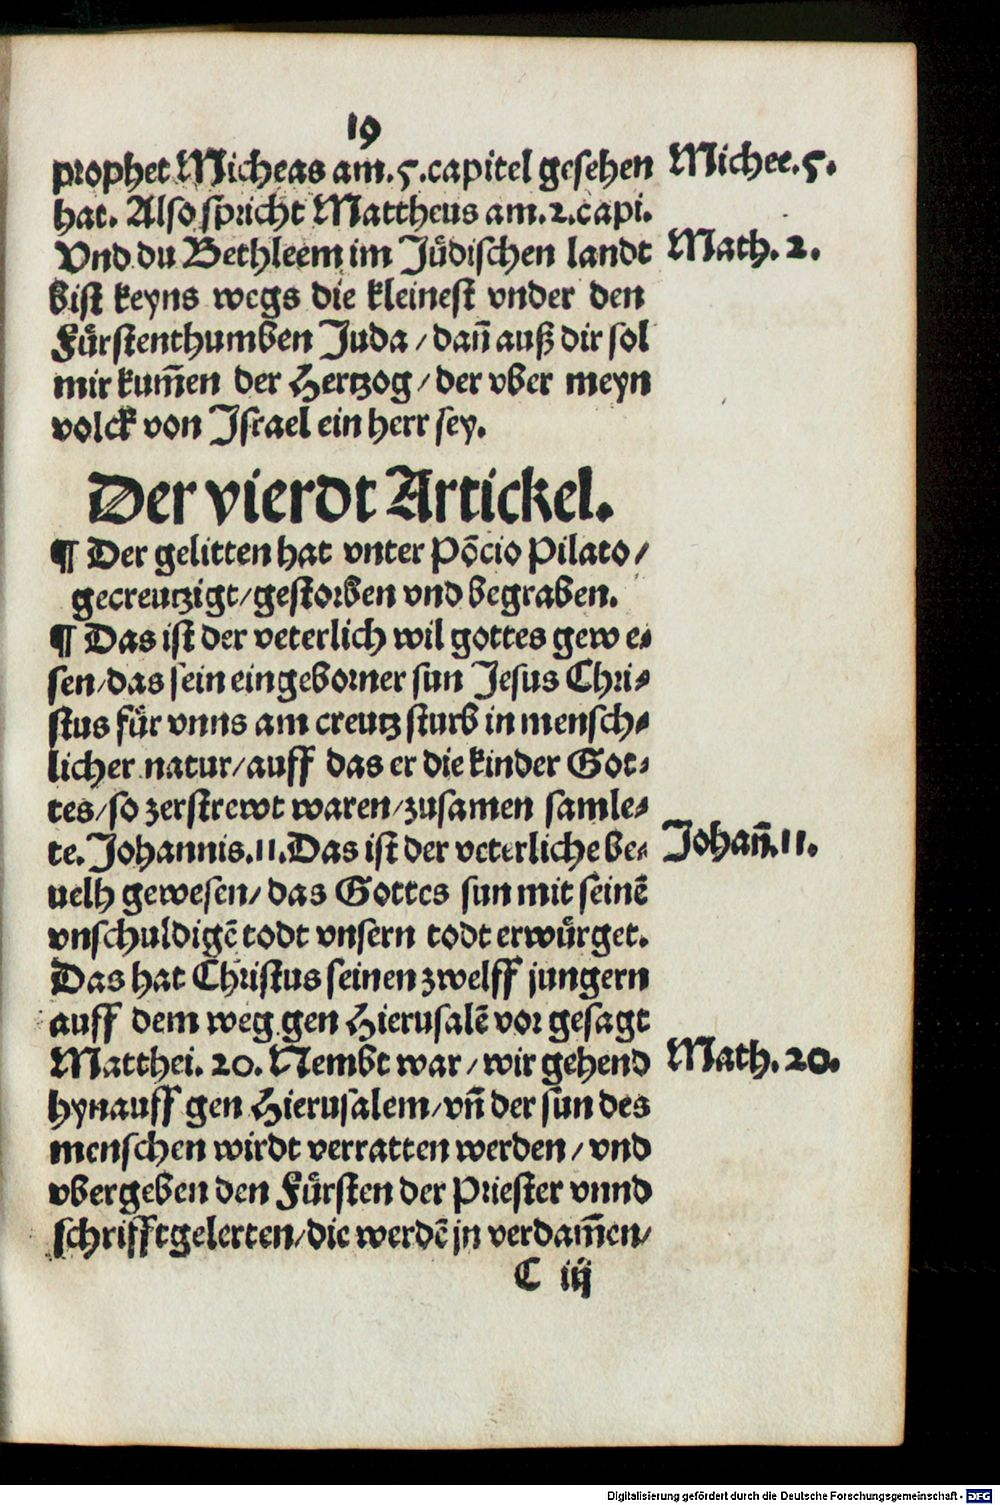 19
prophet Micheas am.5.capitel gesehen Michee.5.
hat. Also spricht Mattheus am.2.capi.
Vnd du Bethleem im Juͤdischen landt Math.2.
bist keyns wegs die kleinest vnder den
Fuͤrstenthumben Juda/dañ auß dir sol
mir kum̃en der Hertzog/der vber meyn
volck von Israel ein herr sey.
Der vierdt Artickel.
¶ Der gelitten hat vnter Põcio Pilato/
gecreutzigt/gestorben vnd begraben.
¶ Das ist der veterlich wil gottes gewe⸗
sen/das sein eingeborner sun Jesus Chri⸗
stus fuͤr vnns am creutz sturb in mensch⸗
licher natur/auff das er die kinder Got⸗
tes/so zerstrewt waren/zusamen samle⸗
te. Johannis.11.Das ist der veterliche be⸗ Johañ.11.
uelh gewesen/das Gottes sun mit seinẽ
vnschuldigẽ todt vnsern todt erwuͤrget.
Das hat Christus seinen zwelff jungern
auff dem weg gen Hierusalẽ vor gesagt
Matthei. 20. Nembt war/wir gehend Math.20.
hynauff gen Hierusalem/vñ der sun des
menschen wirdt verratten werden/vnd
vbergeben den Fuͤrsten der Priester vnnd
schrifftgelerten/die werdẽ jn verdam̃en/
C iij
Digitalisierung gefördert durch die Deutsche Forschungsgemeinschaft - DFG